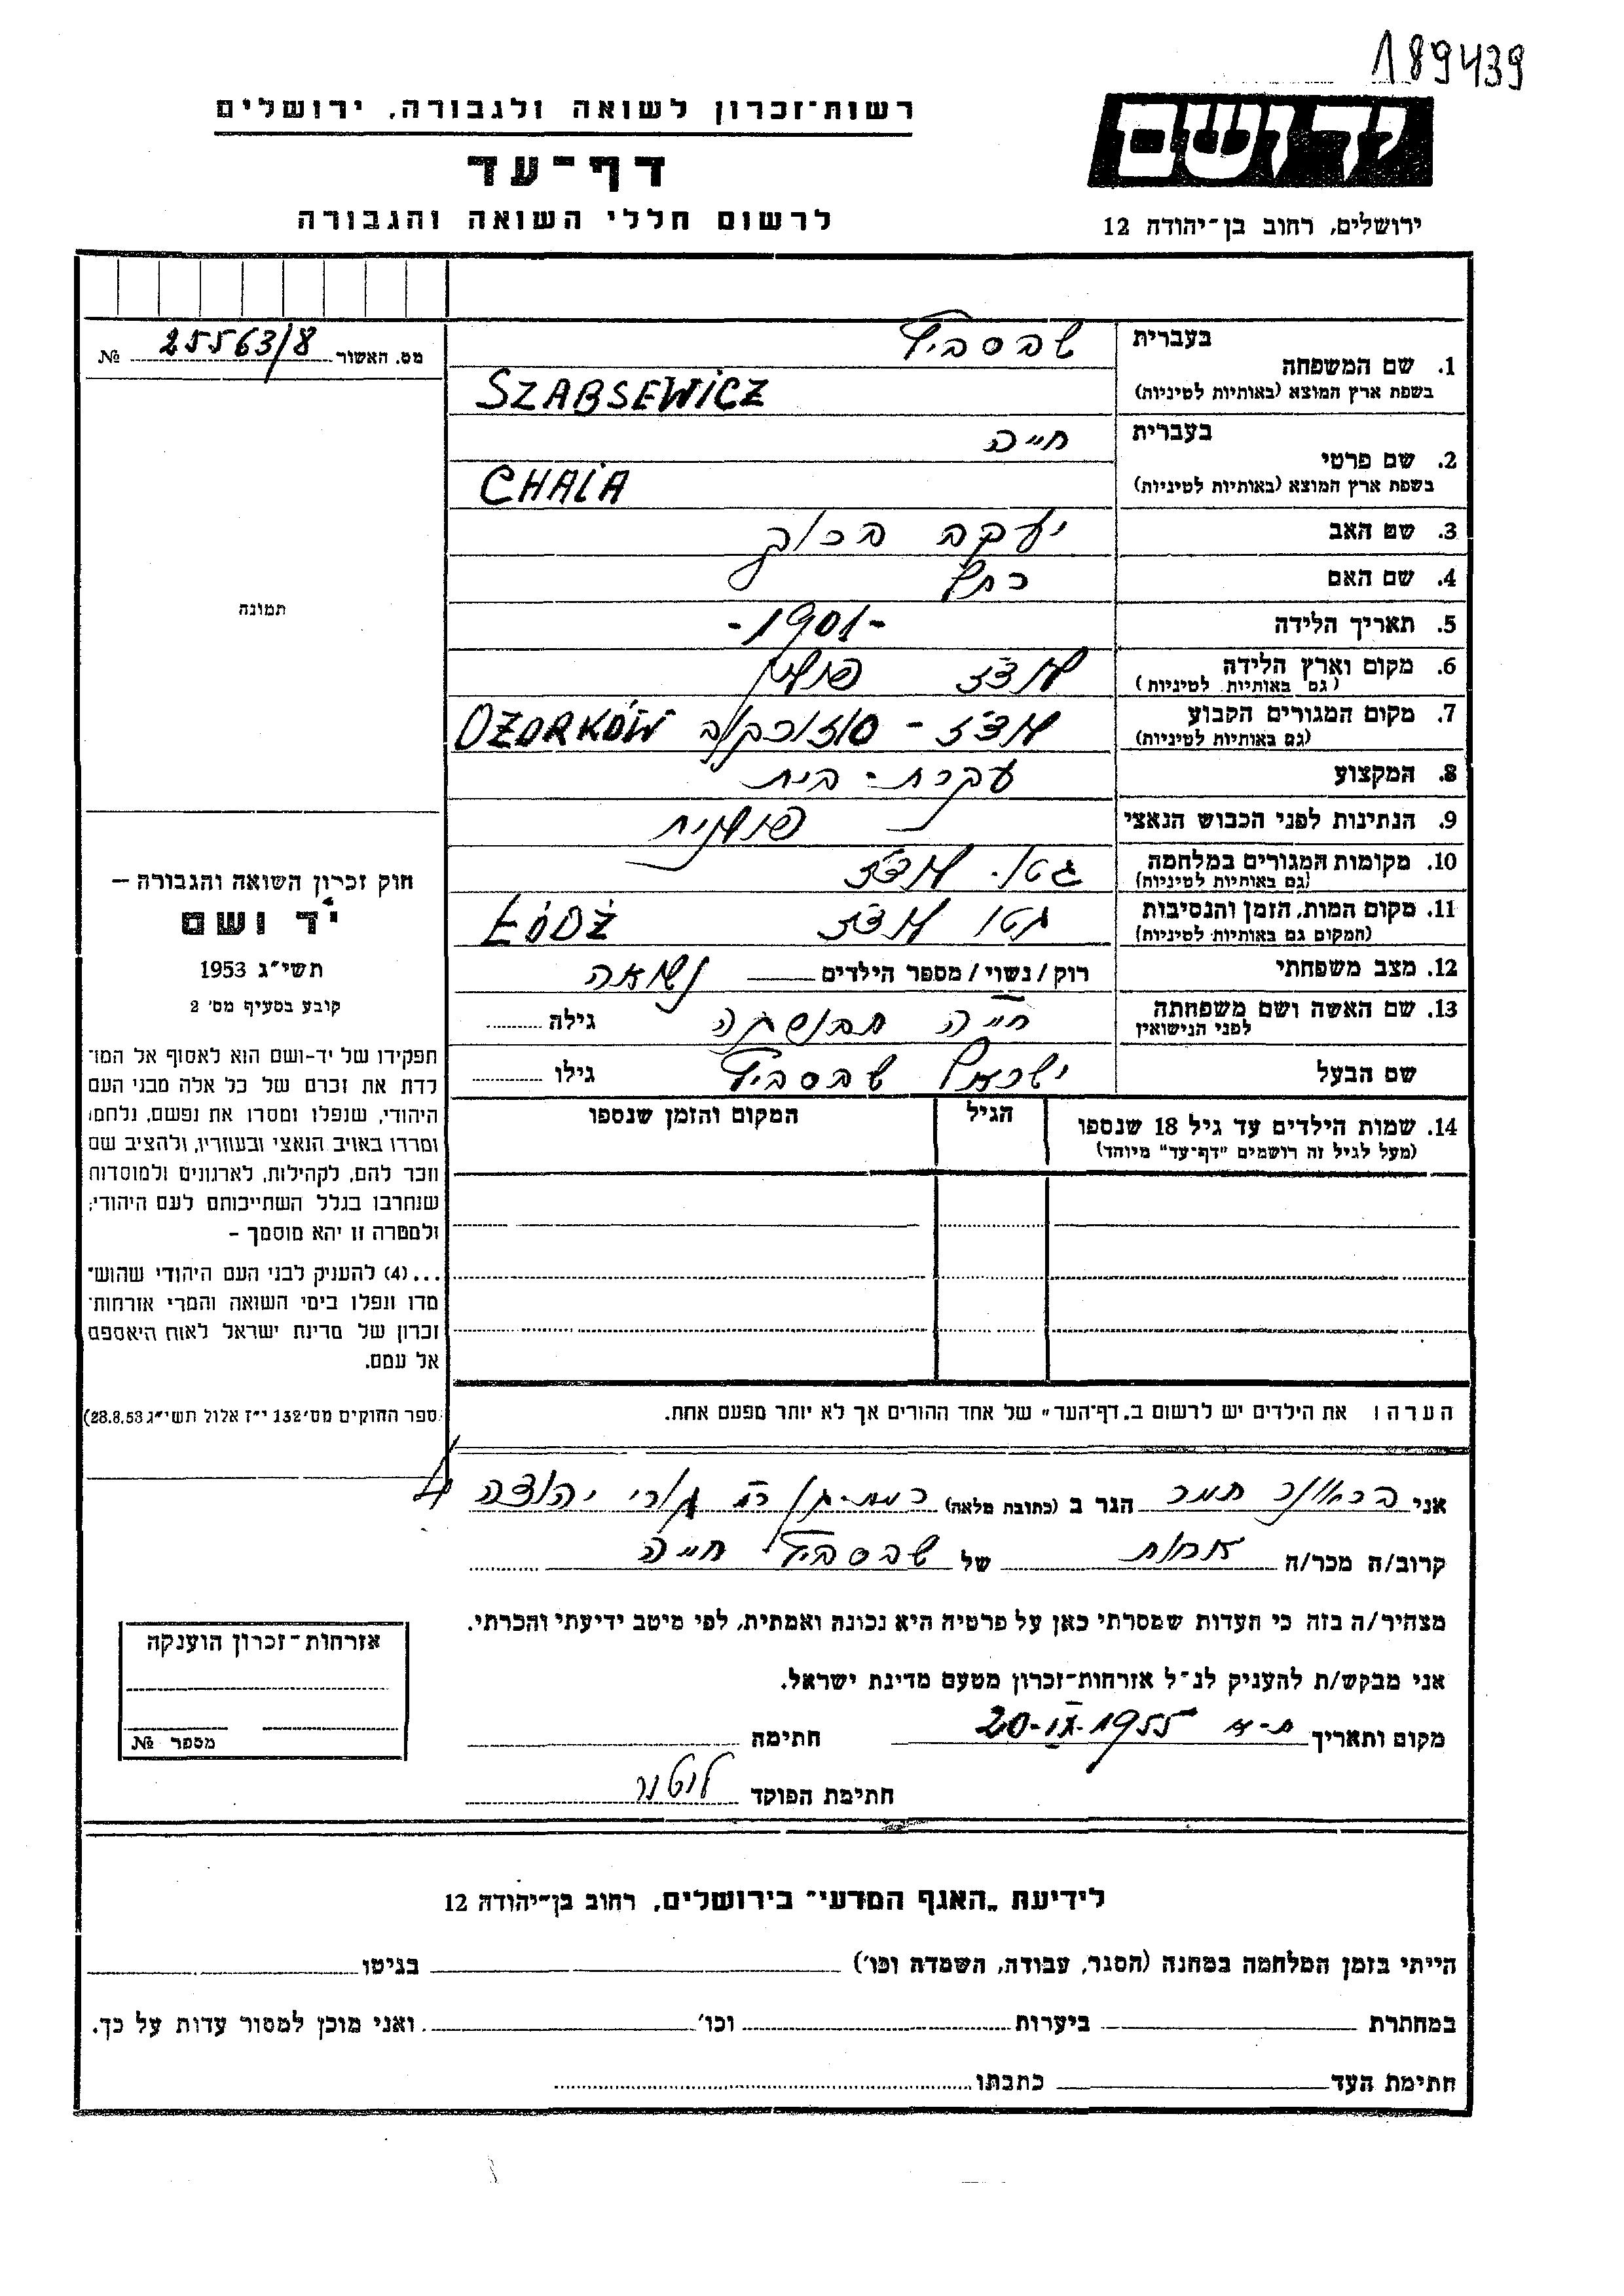 189439
רשות־זכרון לשואה ולגבורה, ירושלים
דף־עד
לרשום חללי השואה והגבורה
ידושם
ירושלים, רחוב בן־יהודה 12
מס. האשור № 25563/8
1. שם המשפחה
בעברית שבסביץ
בשפת ארץ המוצא (באותיות לטיניות) SZABSEWICZ
2. שם פרטי
בעברית חייה
בשפת ארץ המוצא (באותיות לטיניות) CHAIA
3. שם האב יעקב
4. שם האם
5. תאריך הלידה -1901-
6. מקום וארץ הלידה לודז פולין
(גם באותיות לטיניות)
7. מקום המגורים הקבוע לודז - אוזורקוב OŻORKÓW
(גם באותיות לטיניות)
8. המקצוע עקרת-בית
9. הנתינות לפני הכבוש הנאצי פולנית
10. מקומות המגורים במלחמה גטו לודז
(גם באותיות לטיניות)
11. מקום המות, הזמן והנסיבות גטו לודז ŁÓDŹ
(המקום גם באותיות לטיניות)
12. מצב משפחתי רוק / נשוי / מספר הילדים נשואה
13. שם האשה ושם משפחתה חייה גילה
לפני הנישואין
שם הבעל ישראל שבסביץ גילו
14. שמות הילדים עד גיל 18 שנספו הגיל המקום והזמן שנספו
(מעל לגיל זה רושמים "דף־עד" מיוחד)
הערה: את הילדים יש לרשום ב„דף־העד" של אחד ההורים אך לא יותר מפעם אחת.
תמונה
חוק זכרון השואה והגבורה —
יד ושם
תשי"ג 1953
קובע בסעיף מס' 2
תפקידו של יד-ושם הוא לאסוף אל המו־
לדת את זכרם של כל אלה מבני העם
היהודי, שנפלו ומסרו את נפשם, נלחמו
ומרדו באויב הנאצי ובעוזריו, ולהציב שם
וזכר להם, לקהילות, לארגונים ולמוסדות
שנחרבו בגלל השתייכותם לעם היהודי;
ולמטרה זו יהא מוסמך –
...(4) להעניק לבני העם היהודי שהוש־
מדו ונפלו בימי השואה והמרי אזרחות־
זכרון של מדינת ישראל לאות היאספם
אל עמם.
(ספר החוקים מס' 132 י"ז אלול תשי"ג 28.8.53)
אני תמר הגר ב (כתובת מלאה) רמת-גן
קרוב/ה מכר/ה אחות של שבסביץ חייה
מצהיר/ה בזה כי העדות שמסרתי כאן על פרטיה היא נכונה ואמתית, לפי מיטב ידיעתי והכרתי.
אני מבקש/ת להעניק לנ"ל אזרחות־זכרון מטעם מדינת ישראל.
מקום ותאריך ת-א 20-IX-1955 חתימה
חתימת הפוקד
אזרחות־זכרון הוענקה
מספר №
לידיעת „האגף המדעי" בירושלים, רחוב בן־יהודה 12
הייתי בזמן המלחמה במחנה (הסגר, עבודה, השמדה וכו') בגיטו
במחתרת ביערות וכו' ואני מוכן למסור עדות על כך.
חתימת העד כתבתו